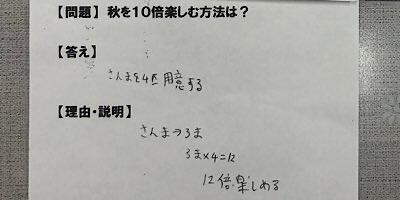 【問題】秋を10倍楽しむ方法は？
【答え】
さんまを4匹用意する
【理由・説明】
さんま→3ま
3ま×4=12
12倍楽しめる